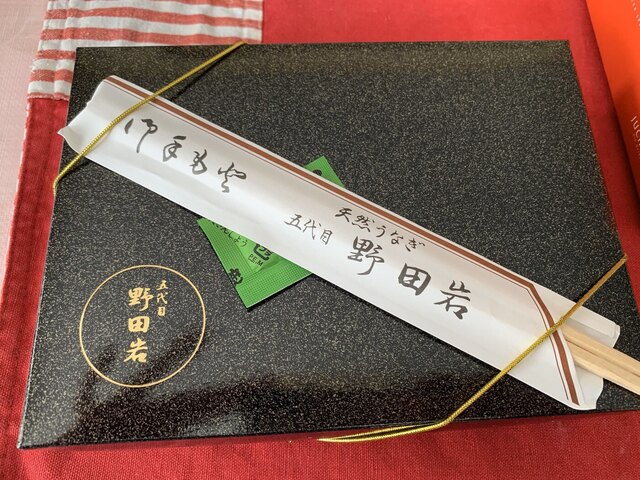 御手もと
天然うなぎ
五代目
野田岩
五代目
野田岩